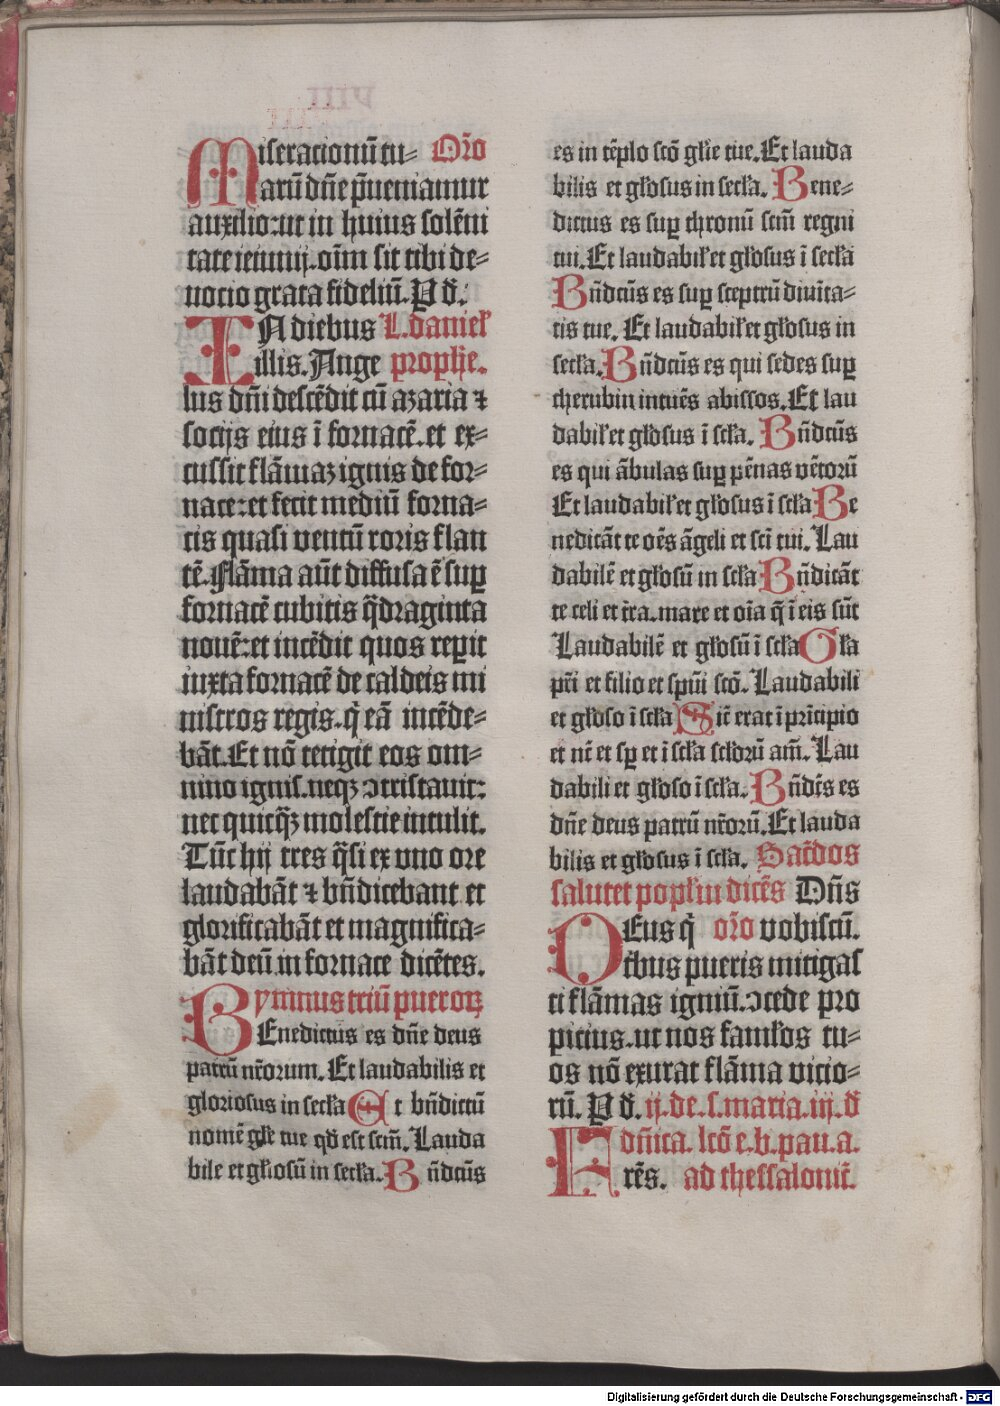 Miserationū tu= Orō
arū dn̄e p̄ueniamur
auxilio:ut in huius solēni
tate ieiunij.oīm sit tibi de=
uotio grata fideliū. P d̄.
IN diebus L. danieł
illis. Ange prophīe.
lus dn̄i descēdit cū azaria ⁊
socijs eius ī fornacē. et ex=
cussit flāmaꝫ ignis de for=
nace:et fecit mediū forna=
cis quasi uentū roris flan
tē. Flāma aūt diffusa ē suꝑ
fornacē cubitis q̄draginta
nouē:et incēdit quos reꝑit
iuxta fornacē de caldeis mi
nistros regis. q̄ eā incēde=
bāt. Et nō tetigit eos om=
nino ignis. neqꝫ ꝯtristauit:
nec quicq̄ꝫ molestie intulit.
Tūc hij tres q̄si ex uno ore
laudabāt ⁊ bn̄dicebant et
glorificabāt et magnifica=
bāt deū. in fornace dicētes.
Bymnus triū pueroꝝ
Enedictus es dn̄e deus
patrū nr̄orum. Et laudabilis et
gloriosus in secła Et bn̄dictū
nomē głie tue qd̄ est scm̄. Lauda
bile et głiosū in secła. Bn̄dctūs
es in tēplo scō głie tue. Et lauda
bilis et głosus in secła. Bene=
dictus es suꝑ thronū scm̄ regni
tui. Et laudabił et głosus ī secła
Bn̄dctūs es suꝑ sceptrū diuīta=
tis tue. Et laudabił et głosus in
secła. Bn̄dctūs es qui sedes suꝑ
cherubin intuēs abissos. Et lau
dabił et głosus ī scła. Bn̄dctūs
es qui ābulas suꝑ pēnas uētorū
Et laudabił et głosus ī scła Be
nedicāt te oēs āgeli et sct̄i tui. Lau
dabilē et głosū in scła Bn̄dicāt
te celi et tr̄a. mare et oīa q̄ ī eis sūt
Laudabilē et głosū ī scła Gła
pr̄i et filio et spūi scō. Laudabili
et głoso ī scła Sic̄ erat ī prīcipio
et nc̄ et sꝑ et ī scła scłorū am̄. Lau
dabili et głoso ī scła. Bn̄dct̄s es
dn̄e deus patrū nr̄orū. Et lauda
bilis et głosus ī scła. Sac̄dos
salutet popłm dicēs Dn̄s
DEus q̄ orō uobiscū.
tribus pueris mitigas
ti flāmas igniū. ꝯcede pro
picius. ut nos famłos tu=
os nō exurat flāma uicio=
rū. P d̄. ij. de. s. maria. iij. d̄
Fdn̄ica. lcō e. b. pau. a.
rēs. ad thessalonic̄.
Digitalisierung gefördert durch die Deutsche Forschungsgemeinschaft - DFG